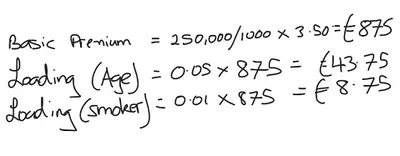 Basic Premium = 250,000/1000 × 3.50 = €875
Loading (Age) = 0.05 × 875 = €43.75
Loading (smoker) = 0.01 × 875 = €8.75